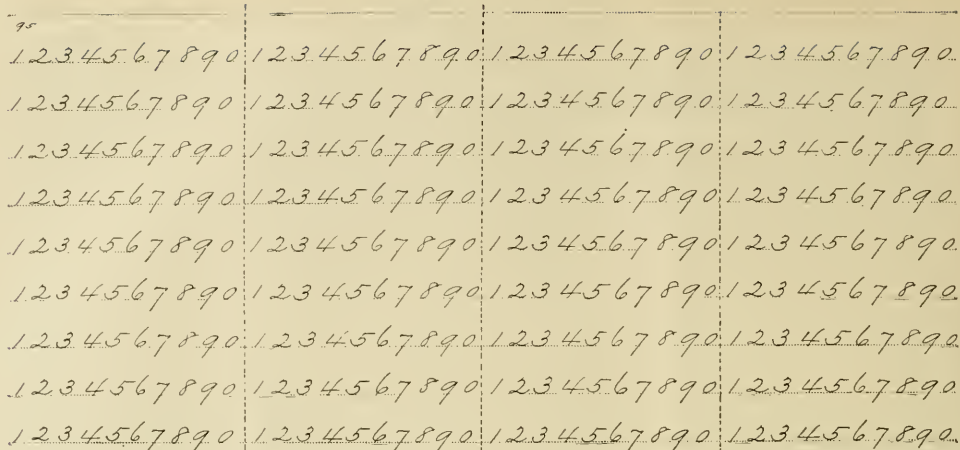 95
1234567890 1234567890 1234567890 1234567890
1234567890 1234567890 1234567890 1234567890
1234567890 1234567890 1234567890 1234567890
1234567890 1234567890 1234567890 1234567890
1234567890 1234567890 1234567890 1234567890
1234567890 1234567890 1234567890 1234567890
1234567890 1234567890 1234567890 1234567890
1234567890 1234567890 1234567890 1234567890
1234567890 1234567890 1234567890 1234567890